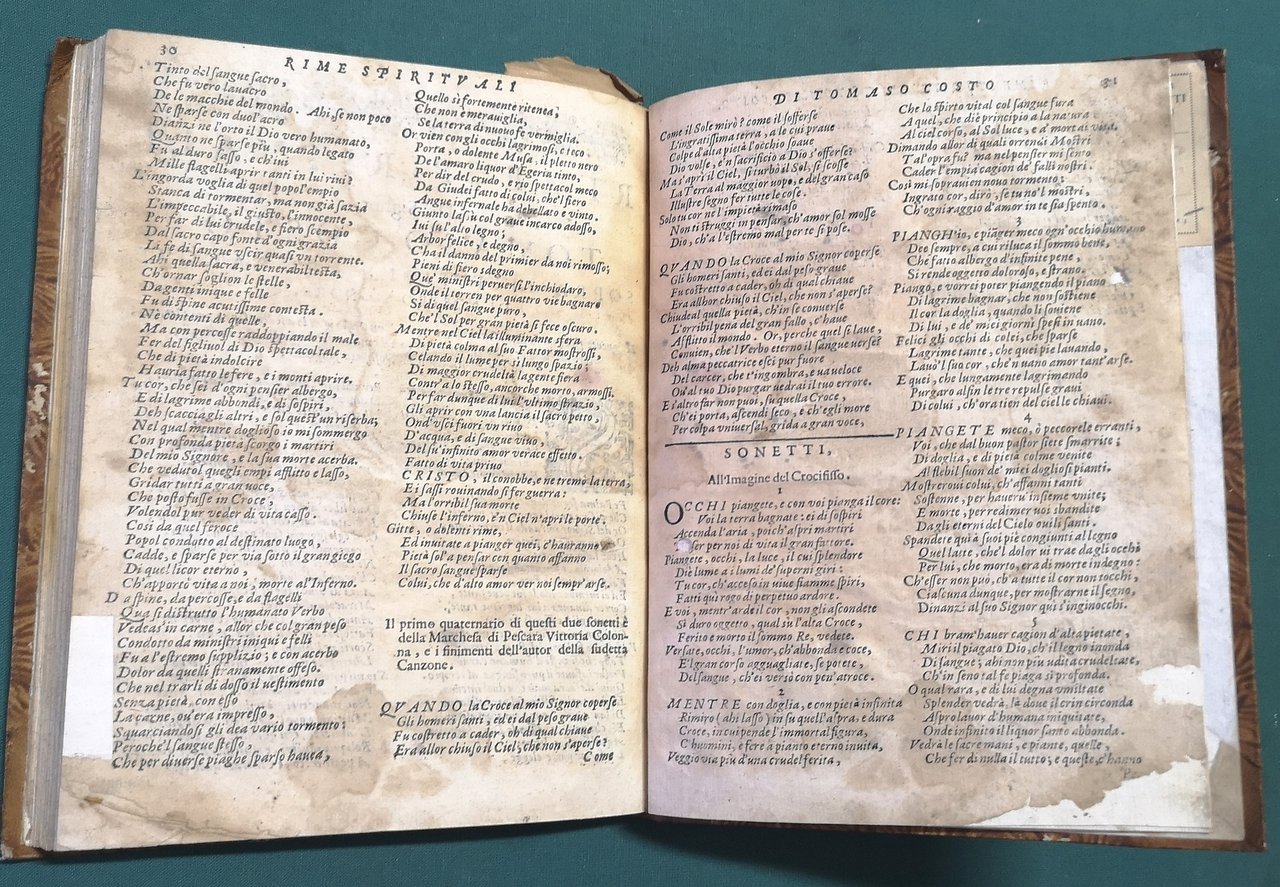 30
RIME SPIRITVALI
Tinto del sangue sacro,
Che fu vero lauacro
De le macchie del mondo. Ahi, se non poco
Ne sparse con duol'acro
Dianzi ne l'orto il Dio vero humanato,
Quanto ne sparse più, quando legato
Fu al duro sasso, e ch'iui
Mille flagelli aprir tanti in lui riui?
L'ingorda voglia di quel popol'empio
Stanca di tormentar, ma non già sazia
L'impeccabile, il giusto, l'innocente,
Per far di lui crudele, e fiero scempio
Dal sacro capo fonte d'ogni grazia
Li fe di sangue vscir quasi vn torrente.
Ahi quella sacra, e venerabil testa,
Ch'ornar soglion le stelle,
Da genti inique e felle
Fu di spine acutissime contesta.
Nè contenti di quelle,
Ma con percosse raddoppiando il male
Fer del figliuol di Dio spettacol tale,
Che di pietà indolcire
Hauria fatto le fere, e i monti aprire.
Tu cor, che sei d'ogni pensier albergo,
E di lagrime abbondi, e di sospiri,
Deh scaccia gli altri, e sol quest'un riserba;
Nel qual mentre doglioso io mi sommergo
Con profonda pietà scorgo i martiri
Del mio Signore, e la sua morte acerba.
Che vedutol quegli empi afflitto e lasso,
Gridar tutti a gran voce,
Che posto fusse in Croce,
Volendol pur veder di vita casso.
Così da quel feroce
Popol condotto al destinato luogo,
Cadde, e sparse per via sotto il gran giego
Di quel licor eterno,
Ch'apportò vita a noi, morte al'Inferno.
Da spine, da percosse, e da flagelli
Qua si distrutto l'humanato Verbo
Vedeas'in carne, allor che col gran peso
Condotto da ministri iniqui e felli
Fu a l'estremo supplizio; e con acerbo
Dolor da quelli stranamente offeso.
Che nel trarli di dosso il vestimento
Senza pietà, con esso
La carne, ou'era impresso,
Squarciandosi gli dea vario tormento:
Peroche'l sangue stesso,
Che per diuerse piaghe sparso hauea,
Quello sì fortemente ritenea;
Che non è merauiglia,
Se la terra di nuouo fè vermiglia.
Or vien con gli occhi lagrimosi, e teco
Porta, o dolente Musa, il plettro nero
De l'amaro liquor d'Egeria tinto,
Per dir del crudo, e rio spettacol meco
Da Giudei fatto di colui, che'l fiero
Angue infernale ha debellato e vinto.
Giunto la sù col graue incarco adosso,
Iui su l'alto legno;
Arbor felice, e degno,
C'ha il danno del primier da noi rimosso;
Pieni di fiero sdegno
Que' ministri peruersi l'inchiodaro,
Onde il terren per quattro vie bagnaro
Si di quel sangue puro,
Che'l Sol per gran pietà si fece oscuro.
Mentre nel Ciel la illuminante sfera
Di pietà colma al suo Fattor mostrossi,
Celando il lume per il lungo spazio;
Di maggior crudeltà la gente fiera
Contr'a lo stesso, ancorche morto, armossi.
Per far dunque di lui l'vltimo strazio,
Gli aprir con vna lancia il sacro petto,
Ond'vscì fuori vn riuo
D'acqua, e di sangue viuo,
Del su'infinito amor verace effetto.
Fatto di vita priuo
CRISTO, il conobbe, e ne tremò la terra,
E i sassi rouinando si fer guerra:
Ma l'orribil sua morte
Chiuse l'inferno, e'n Ciel n'aprì le porte.
Gitte, o dolenti rime,
Ed inuitate a pianger quei, c'hauranno
Pietà sol'a pensar cen quanto affanno
Il sacro sangue sparse
Colui, che d'alto amor ver noi semp'arse.
Il primo quaternario di questi due sonetti è
della Marchesa di Pescara Vittoria Colon-
na, e i finimenti dell'autor della sudetta
Canzone.
QVANDO la Croce al mio Signor coperse
Gli homeri santi, ed ei dal peso graue
Fu costretto a cader, oh di qual chiaue
Era allor chiuso il Ciel, che non s'aperse?
Come
DI TOMASO COSTO
31
Come il Sole mirò? come il sofferse
L'ingratissima terra, a le cui praue
Colpe d'alta pietà l'occhio soaue
Dio volse, e'n sacrificio a Dio s'offerse?
Ma s'aprì il Ciel, si turbò il Sol, si scosse
La Terra al maggior uopo, e del gran caso
Illustre segno fer tutte le cose.
Solo tu cor ne l'impietà rimaso
Non ti struggi in pensar, ch'amor sol mosse
Dio, ch'a l'estremo mal per te si pose.
QVANDO la Croce al mio Signor coperse
Gli homeri santi, ed ei dal peso graue
Fu costretto a cader, oh di qual chiaue
Era allhor chiuso il Ciel, che non s'aperse?
Chiudeal quella pietà, ch'in se conuerse
L'orribil pena del gran fallo, c'haue
Afflitto il mondo. Or, perche quel si laue,
Conuien, che'l Verbo eterno il sangue uerse?
Deh alma peccatrice esci pur fuore
Del carcer, che t'ingombra, e ua ueloce
Ou'al tuo Dio purgar uedrai il tuo errore.
E s'altro far non puoi, su quella Croce,
Ch'ei porta, ascendi seco, e ch'egli more
Per colpa vniuersal, grida a gran voce,
SONETTI,
All'Imagine del Crocifisso.
1
OCCHI piangete, e con voi pianga il core:
Voi la terra bagnate: ei di sospiri
Accenda l'aria, poich'aspri martiri
Sofser per noi di vita il gran fattore.
Piangete, occhi, la luce, il cui splendore
Diè lume a i lumi de' superni giri:
Tu cor, ch'acceso in uiue fiamme spiri,
Fatti qui rogo di perpetuo ardore.
E voi, mentr'arde il cor, non gli ascondete
Sì duro oggetto, qual su l'alta Croce,
Ferito e morto il sommo Re, vedete.
Versate, occhi, l'umor, ch'abbonda e coce,
E'l gran corso agguagliate, se potete,
Del sangue, ch'ei versò con pen'atroce.
2
MENTRE con doglia, e con pietà infinita
Rimiro (ahi lasso) in su quell'aspra, e dura
Croce, in cui pende l'immortal figura,
C'huomini, e fere a pianto eterno inuita,
Veggio via più d'una crudel ferita,
Che lo spirto vital col sangue fura
A quel, che diè principio a la natura
Al ciel corso, al Sol luce, e a' mortai vita.
Dimando allor di quali orrendi Mostri
Tal'opra fu? ma nel pensier mi sento
Cader l'empia cagion de' falli nostri.
Così mi soprauien nouo tormento;
Ingrato cor, dirò, se tu no'l mostri,
Ch'ogni raggio d'amor in te sia spento.
3
PIANGH'io, e piager meco ogn'occhio humano
Dee sempre, a cui riluca il sommo bene,
Che fatto albergo d'infinite pene,
Si rende oggetto doloroso, e strano.
Piango, e vorrei poter piangendo il piano
Di lagrime bagnar, che non sostiene
Il cor la doglia, quando li souiene
Di lui, e de' miei giorni spesi in uano.
Felici gli occhi di colei, che sparse
Lagrime tante, che quei pie lauando,
Lauò'l suo cor, che'n uano amor tant'arse.
E quei, che lungamente lagrimando
Purgaro alfin le tre repulse graui
Di colui, ch'ora tien del ciel le chiaui.
4
PIANGETE meco, ò pecorele erranti,
Voi, che dal buon pastor siete smarrite;
Di doglia, e di pietà colme venite
Al flebil suon de' miei dogliosi pianti.
Mostrerouui colui, ch'affanni tanti
Sostenne, per haueru'insieme vnite;
E morte, per redimer uoi sbandite
Dagli eterni del Cielo ouili santi.
Spandete quì a suoi piè congiunti al legno
Quel latte, che'l dolor ui trae da gli occhi
Per lui, che morto, era di morte indegno:
Ch'esser non può, ch'a tutte il cor non tocchi,
Ciascuna dunque, per mostrarne il segno,
Dinanzi al suo Signor quì s'inginocchi.
5
CHI bram'hauer cagion d'alta pietate,
Miri il piagato Dio, ch'il legno inonda
Di sangue; ahi non più udita crudeltate,
Ch'in seno tal fè piaga sì profonda.
O qual rara, e di lui degna vmiltate
Splender vedrà, là doue il crin circonda
Aspro lauor d'humane iniquitate,
Onde infinito il liquor santo abbonda.
Vedrà le sacre mani, e piante, quelle,
Che fer di nulla il tutto; e queste, c'hanno